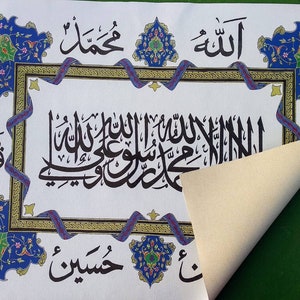 الله محمد
لا اله الا الله محمد رسول الله علي ولي الله
حسين